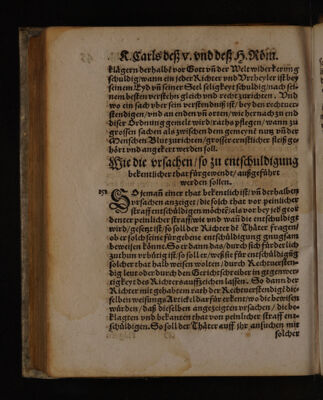 K. Carls deß v. vnd deß H. Röm.
klägern derhalb vor Gott vñ der Welt widerkerung
schuldig/ wann ein jeder Richter vnd Vrtheyler ist bey
seinem Eyd vñ seiner Seel seligkeyt schuldig/ nach sei-
nem besten verstehn gleich vnd recht zurichten. Vnd
wo ein sach vber sein verstendnuß ist/ bey den rechtuer-
stendigen/ vnd an enden vñ orten/ wie hernach zu end
diser Ordnung gemelt wird/ raths pflegen/ wann zu
grossen sachen als zwischen dem gemeynē nutz vñ der
Menschen Blut zurichten/ grosser ernstlicher fleiß ge-
hört vnd angekert werden soll.
Wie die vrsachen/ so zu entschuldigung
bekentlicher that fürgewendt/ außgeführt
werden sollen.
151. SO jemañ einer that bekentlich ist/ vñ derhalben
vrsachen anzeiget/ die solch that vor peinlicher
straff entschuldigen möcht/ als vor bey jeder
peinlicher straff/ wie vnd wañ die entschuldigt
wird/ gesetzt ist/ so soll der Richter dē Thäter fragen/
ob er solch seine fürgebene entschuldigung gnugsam
beweisen könnt. So er dann das/ durch sich fürderlich
zuthun vrbütig ist/ so soll er/ weß sie für entschuldigūg
solcher that halb weisen wolten/ durch Rechtuersten-
dig leut oder durch den Gerichtschreiber in gegenwer-
tigkeyt des Richters auffzeichen lassen. So dann der
Richter mit gehabtem rath der Rechtuerstendigē die-
selben weisungs Artickel dar für erkent/ wo die bewisen
würden/ daß dieselben angezeigten vrsachen/ die be-
klagten vnd bekanten that von peinlicher straff ent-
schüldigen. So soll der Thäter auff jhr ansuchen mit
solcher